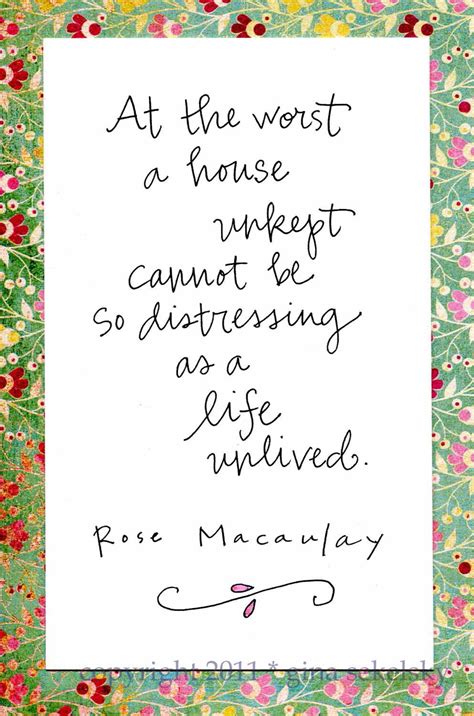 At the worst
a house
unkept
cannot be
so distressing
as a
life
unlived.
Rose Macaulay
copyright 2011 * gina sekelsky